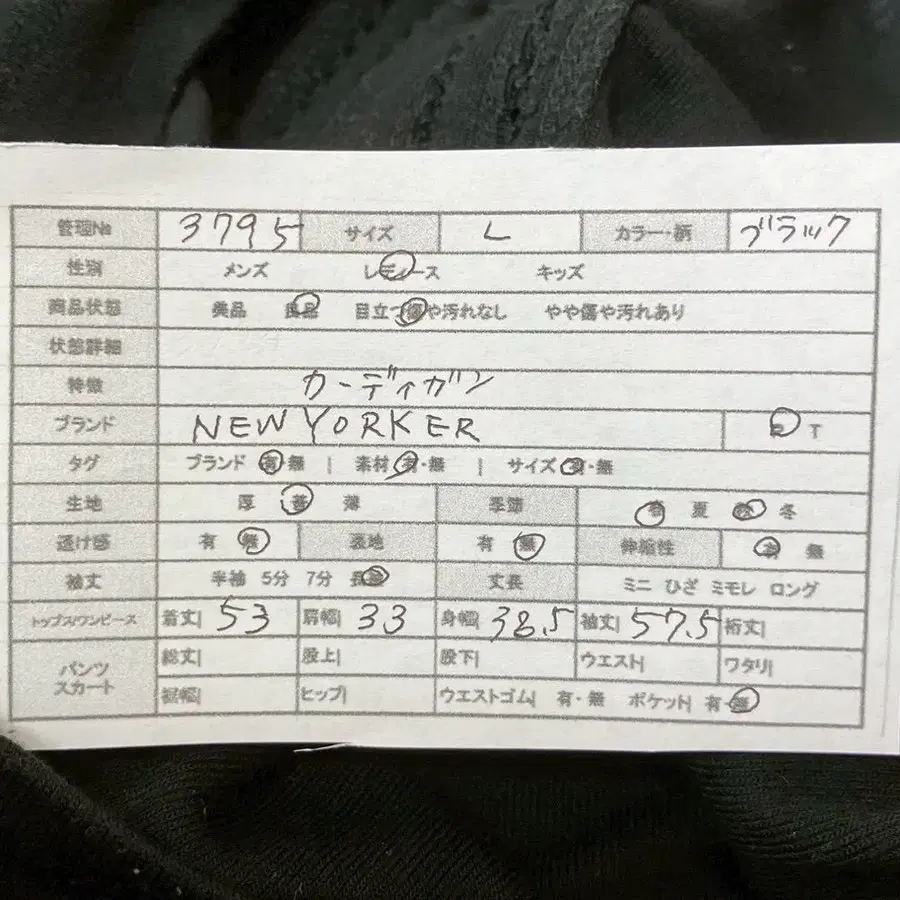 管理№ 3795 サイズ L カラー・柄 ブラック
性別 メンズ レディース キッズ
商品状態 美品 良品 目立つ傷や汚れなし やや傷や汚れあり
状態詳細
特徴 カーディガン
ブランド NEW YORKER T
タグ ブランド 有・無 | 素材 有・無 | サイズ 有・無
生地 厚 普 薄 季節 春 夏 秋 冬
透け感 有 無 裏地 有 無 伸縮性 有 無
袖丈 半袖 5分 7分 長袖 丈長 ミニ ひざ ミモレ ロング
トップス/ワンピース 着丈| 53 肩幅| 33 身幅| 38.5 袖丈| 57.5 裄丈|
パンツ スカート 総丈| 股上| 股下| ウエスト| ワタリ|
裾幅| ヒップ| ウエストゴム| 有・無 ポケット| 有・無